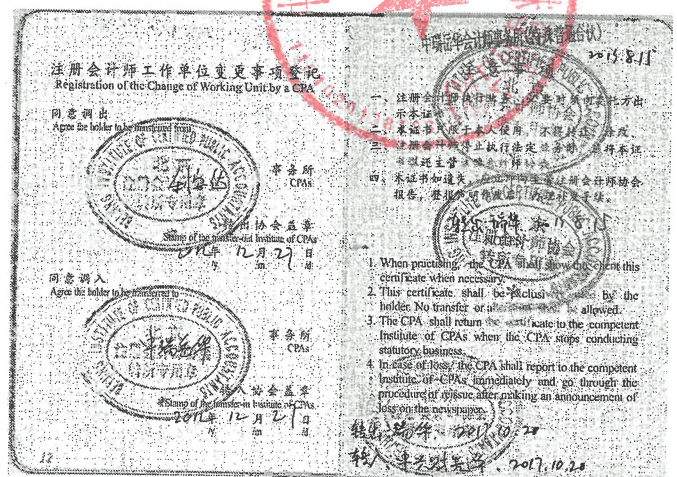 注册会计师工作单位变更事项登记
Registration of the Change of Working Unit by a CPA
同意调出
Agree the holder to be transferred from
事务所
CPAs
转出协会盖章
Stamp of the transfer-out Institute of CPAs
2012年 12月 27日
/y /m /d
同意调入
Agree the holder to be transferred to
事务所
CPAs
转入协会盖章
Stamp of the transfer-in Institute of CPAs
2012年 12月 27日
/y /m /d
12
中瑞岳华会计师事务所(特殊普通合伙)
2013.8.15
一、注册会计师执行业务,必要时须向委托方出
示本证书。
二、本证书只限于本人使用,不得转让、涂改。
三、注册会计师停止执行法定业务时,应将本证
书缴还主管注册会计师协会。
四、本证书如遗失,应立即向主管注册会计师协会
报告,登报声明作废后,办理补发手续。
1. When practising, the CPA shall show the client this
certificate when necessary.
2. This certificate shall be exclusively used by the
holder. No transfer or alteration shall be allowed.
3. The CPA shall return the certificate to the competent
Institute of CPAs when the CPA stops conducting
statutory business.
4. In case of loss, the CPA shall report to the competent
Institute of CPAs immediately and go through the
procedure of reissue after making an announcement of
loss on the newspaper.
转出:瑞华 2017.10.20
2017.10.20